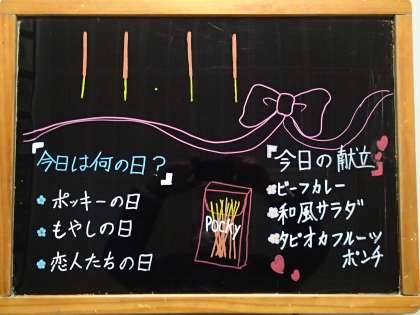 『今日は何の日?』
ポッキーの日
もやしの日
恋人たちの日
Pocky
『今日の献立』
ビーフカレー
和風サラダ
タピオカフルーツ
ポンチ